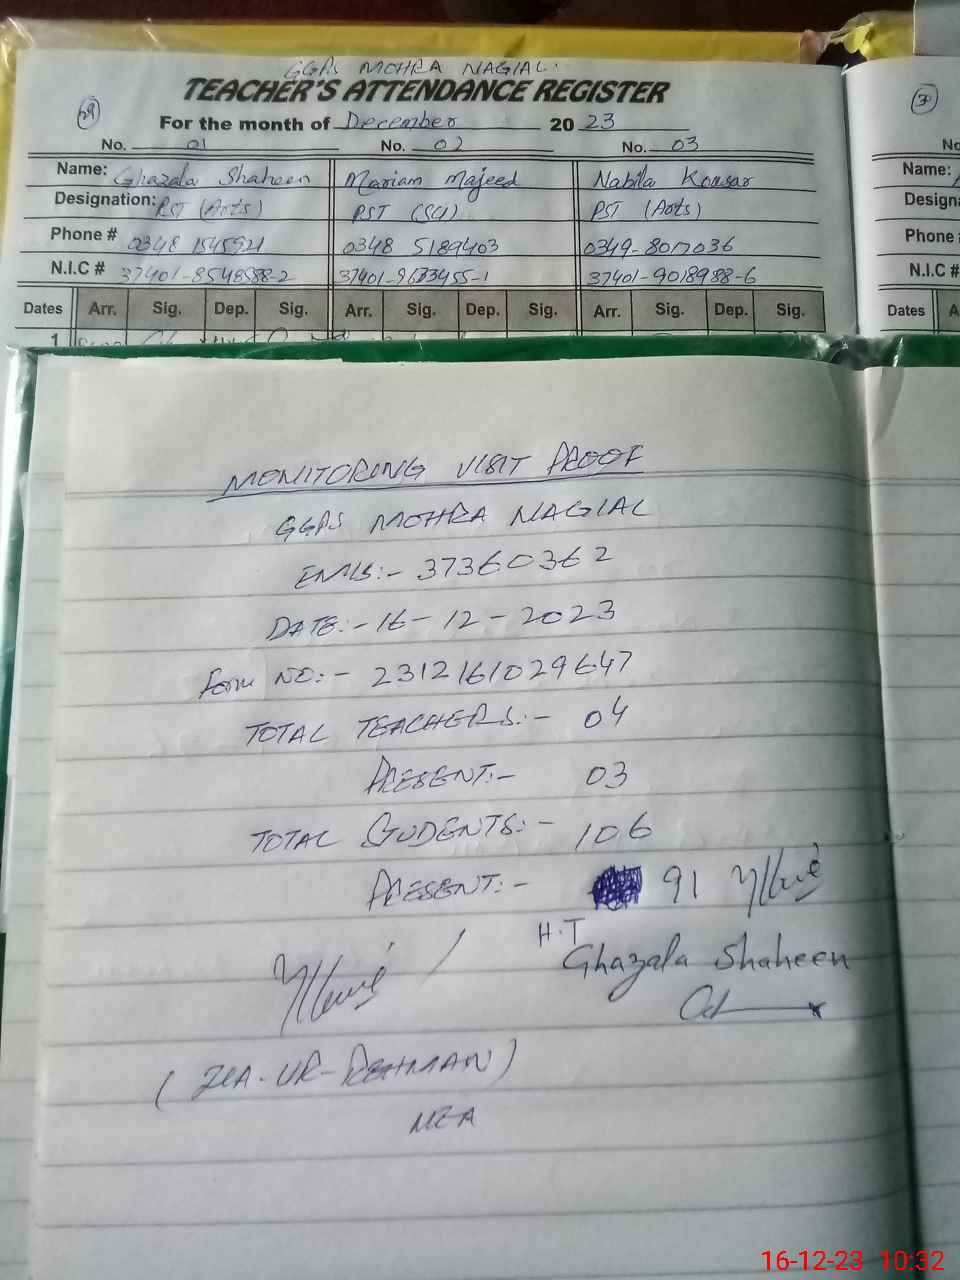 GGPS MOHRA NAGIAL.
TEACHER'S ATTENDANCE REGISTER
29
For the month of December 2023
No. 01 No. 02 No. 03
Name: Ghazala Shaheen Mariam Majeed Nabila Kousar
Designation: PST (Arts) PST (Sci) PST (Arts)
Phone # 0348 1545921 0348 5189403 0349-8017036
N.I.C # 37401-8548588-2 37401-9673455-1 37401-9018988-6
Dates Arr. Sig. Dep. Sig. Arr. Sig. Dep. Sig. Arr. Sig. Dep. Sig.
1
30
No
Name:
Design
Phone
N.I.C #
Dates A
MONITORING VISIT PROOF
GGPS MOHRA NAGIAL
EMIS:- 37360362
DATE:- 16-12-2023
Form NO:- 2312161029647
TOTAL TEACHERS:- 04
PRESENT:- 03
TOTAL STUDENTS:- 106
PRESENT:- 91
H.T
Ghazala Shaheen
(ZIA-UR-REHMAN)
MEA
16-12-23 10:32